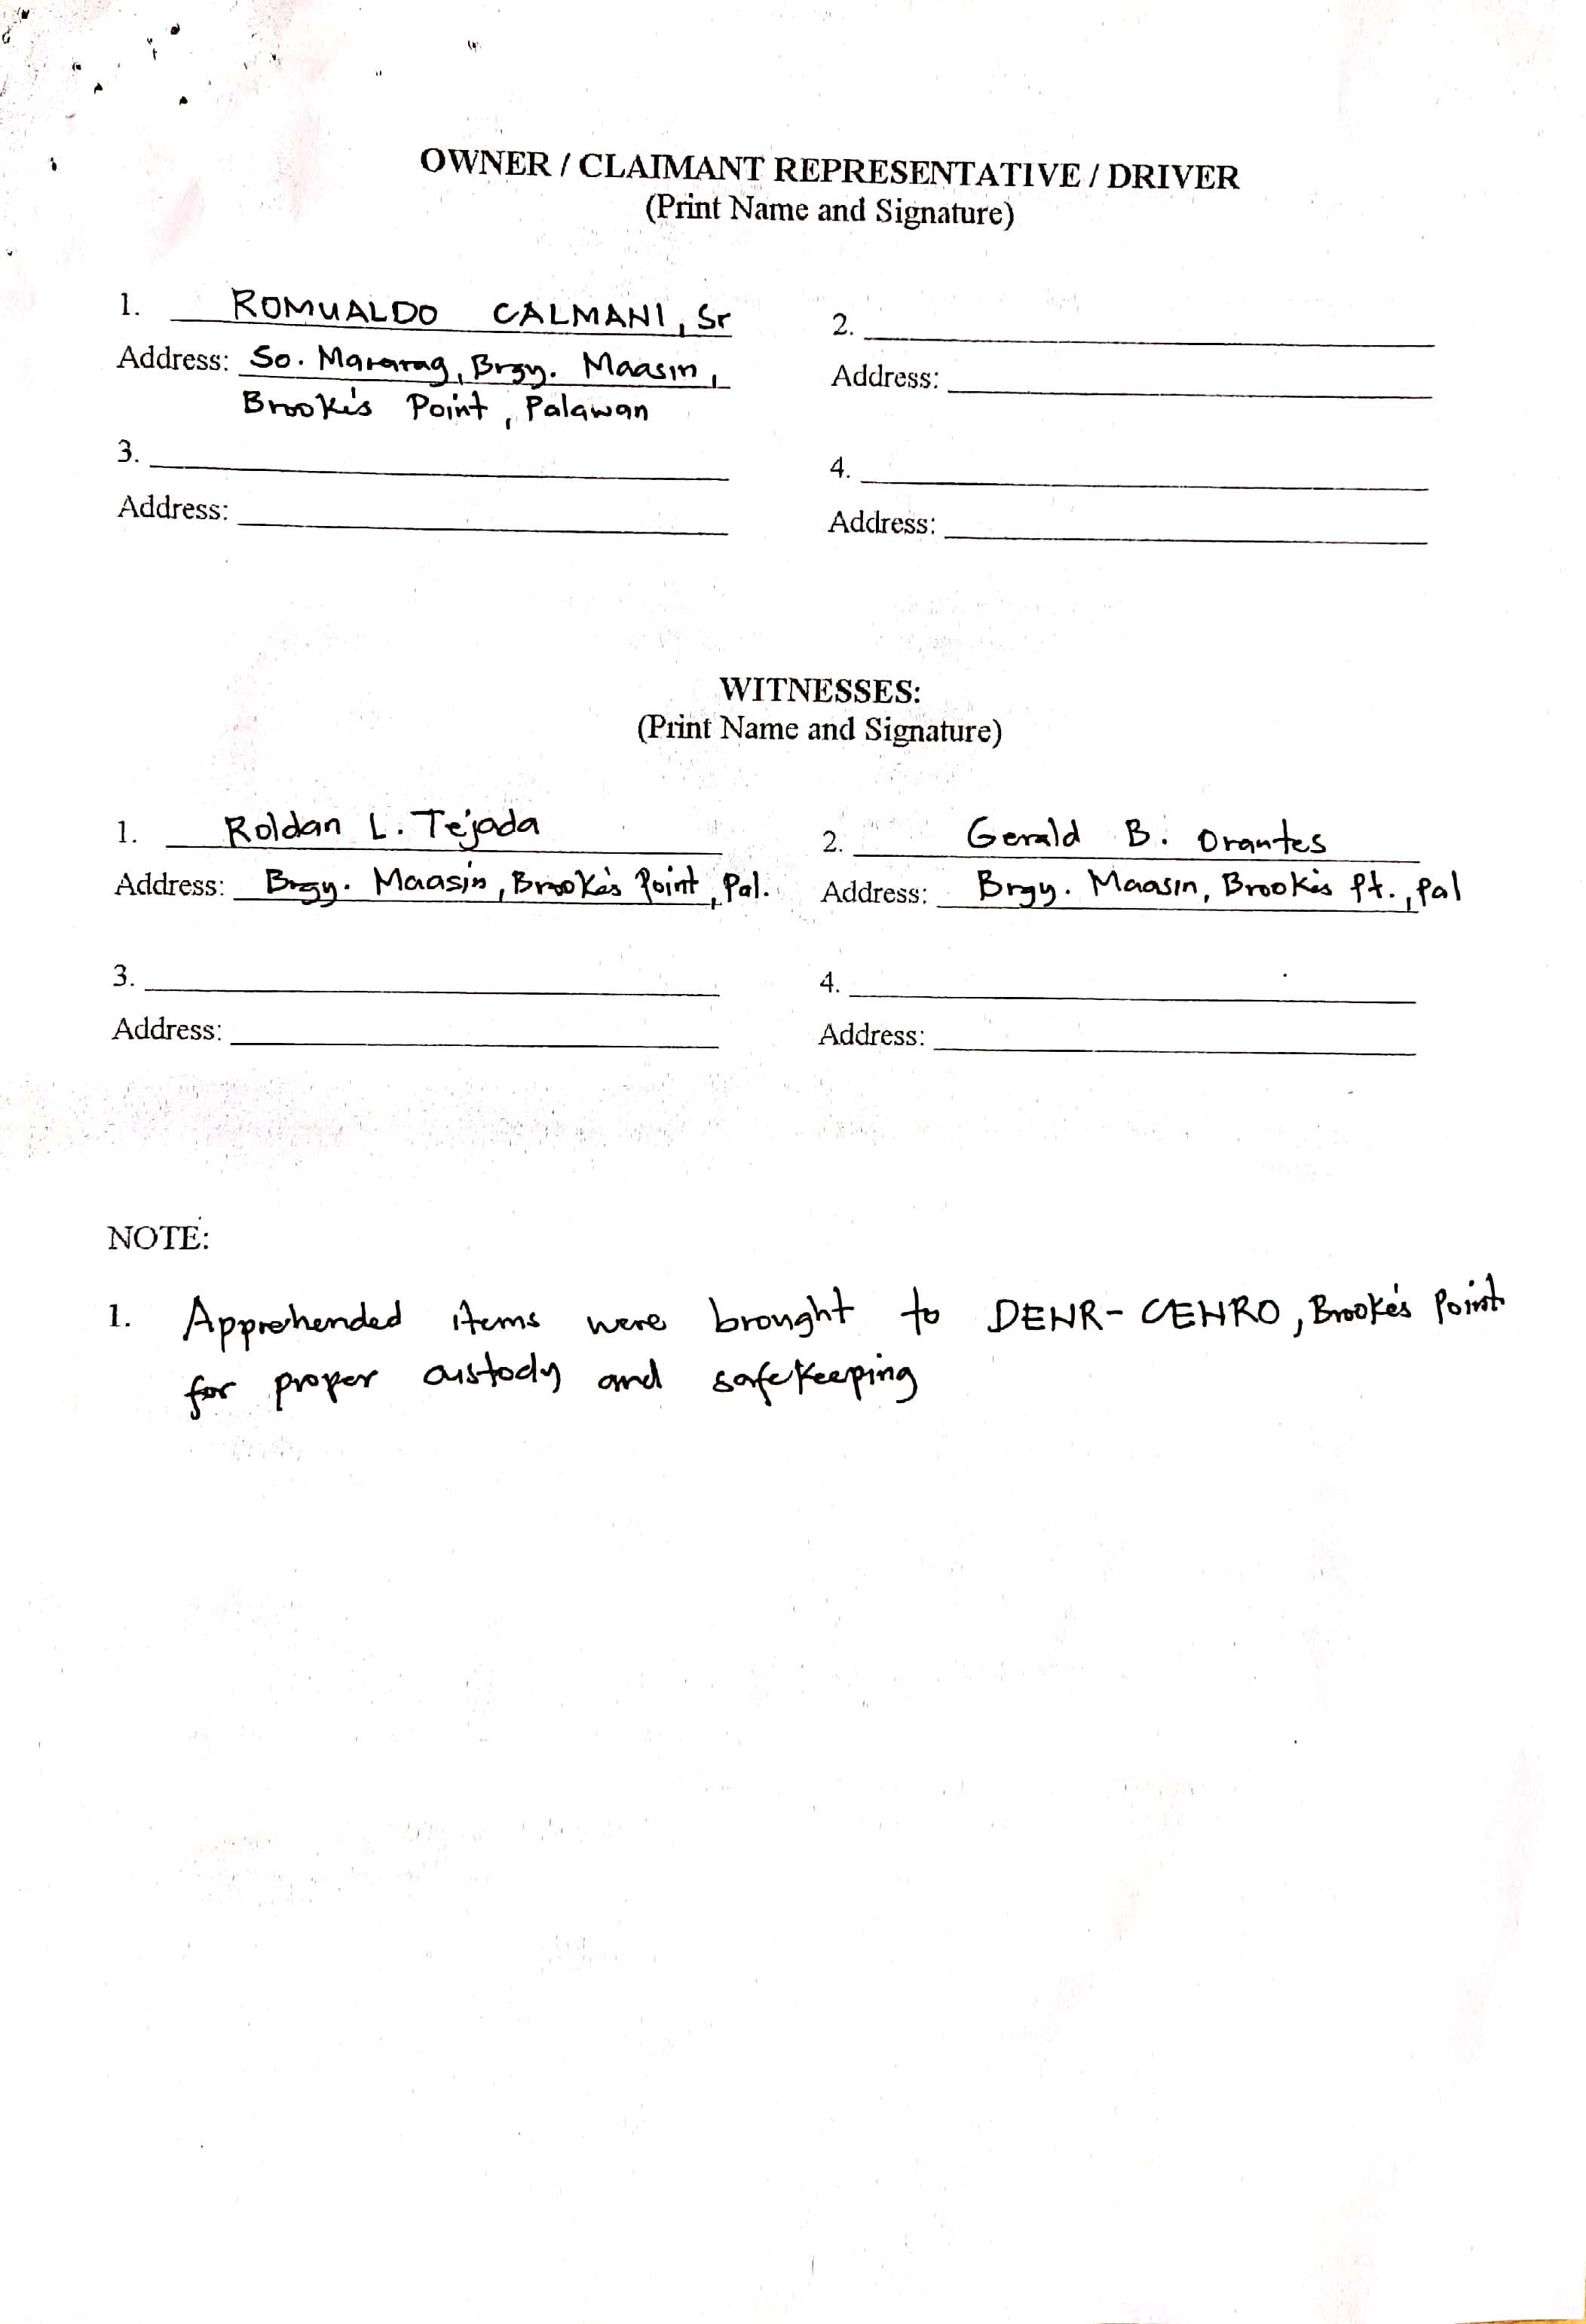 OWNER / CLAIMANT REPRESENTATIVE / DRIVER
(Print Name and Signature)
1. ROMUALDO CALMANI, Sr
Address: So. Mararag, Brgy. Maasin,
Brooke's Point, Palawan
2.
Address:
3.
Address:
4.
Address:
WITNESSES:
(Print Name and Signature)
1. Roldan L. Tejada
Address: Brgy. Maasin, Brooke's Point, Pal.
2. Gerald B. Orantes
Address: Brgy. Maasin, Brooke's Pt., Pal
3.
Address:
4.
Address:
NOTE:
1. Apprehended items were brought to DENR-CENRO, Brooke's Point
for proper custody and safekeeping